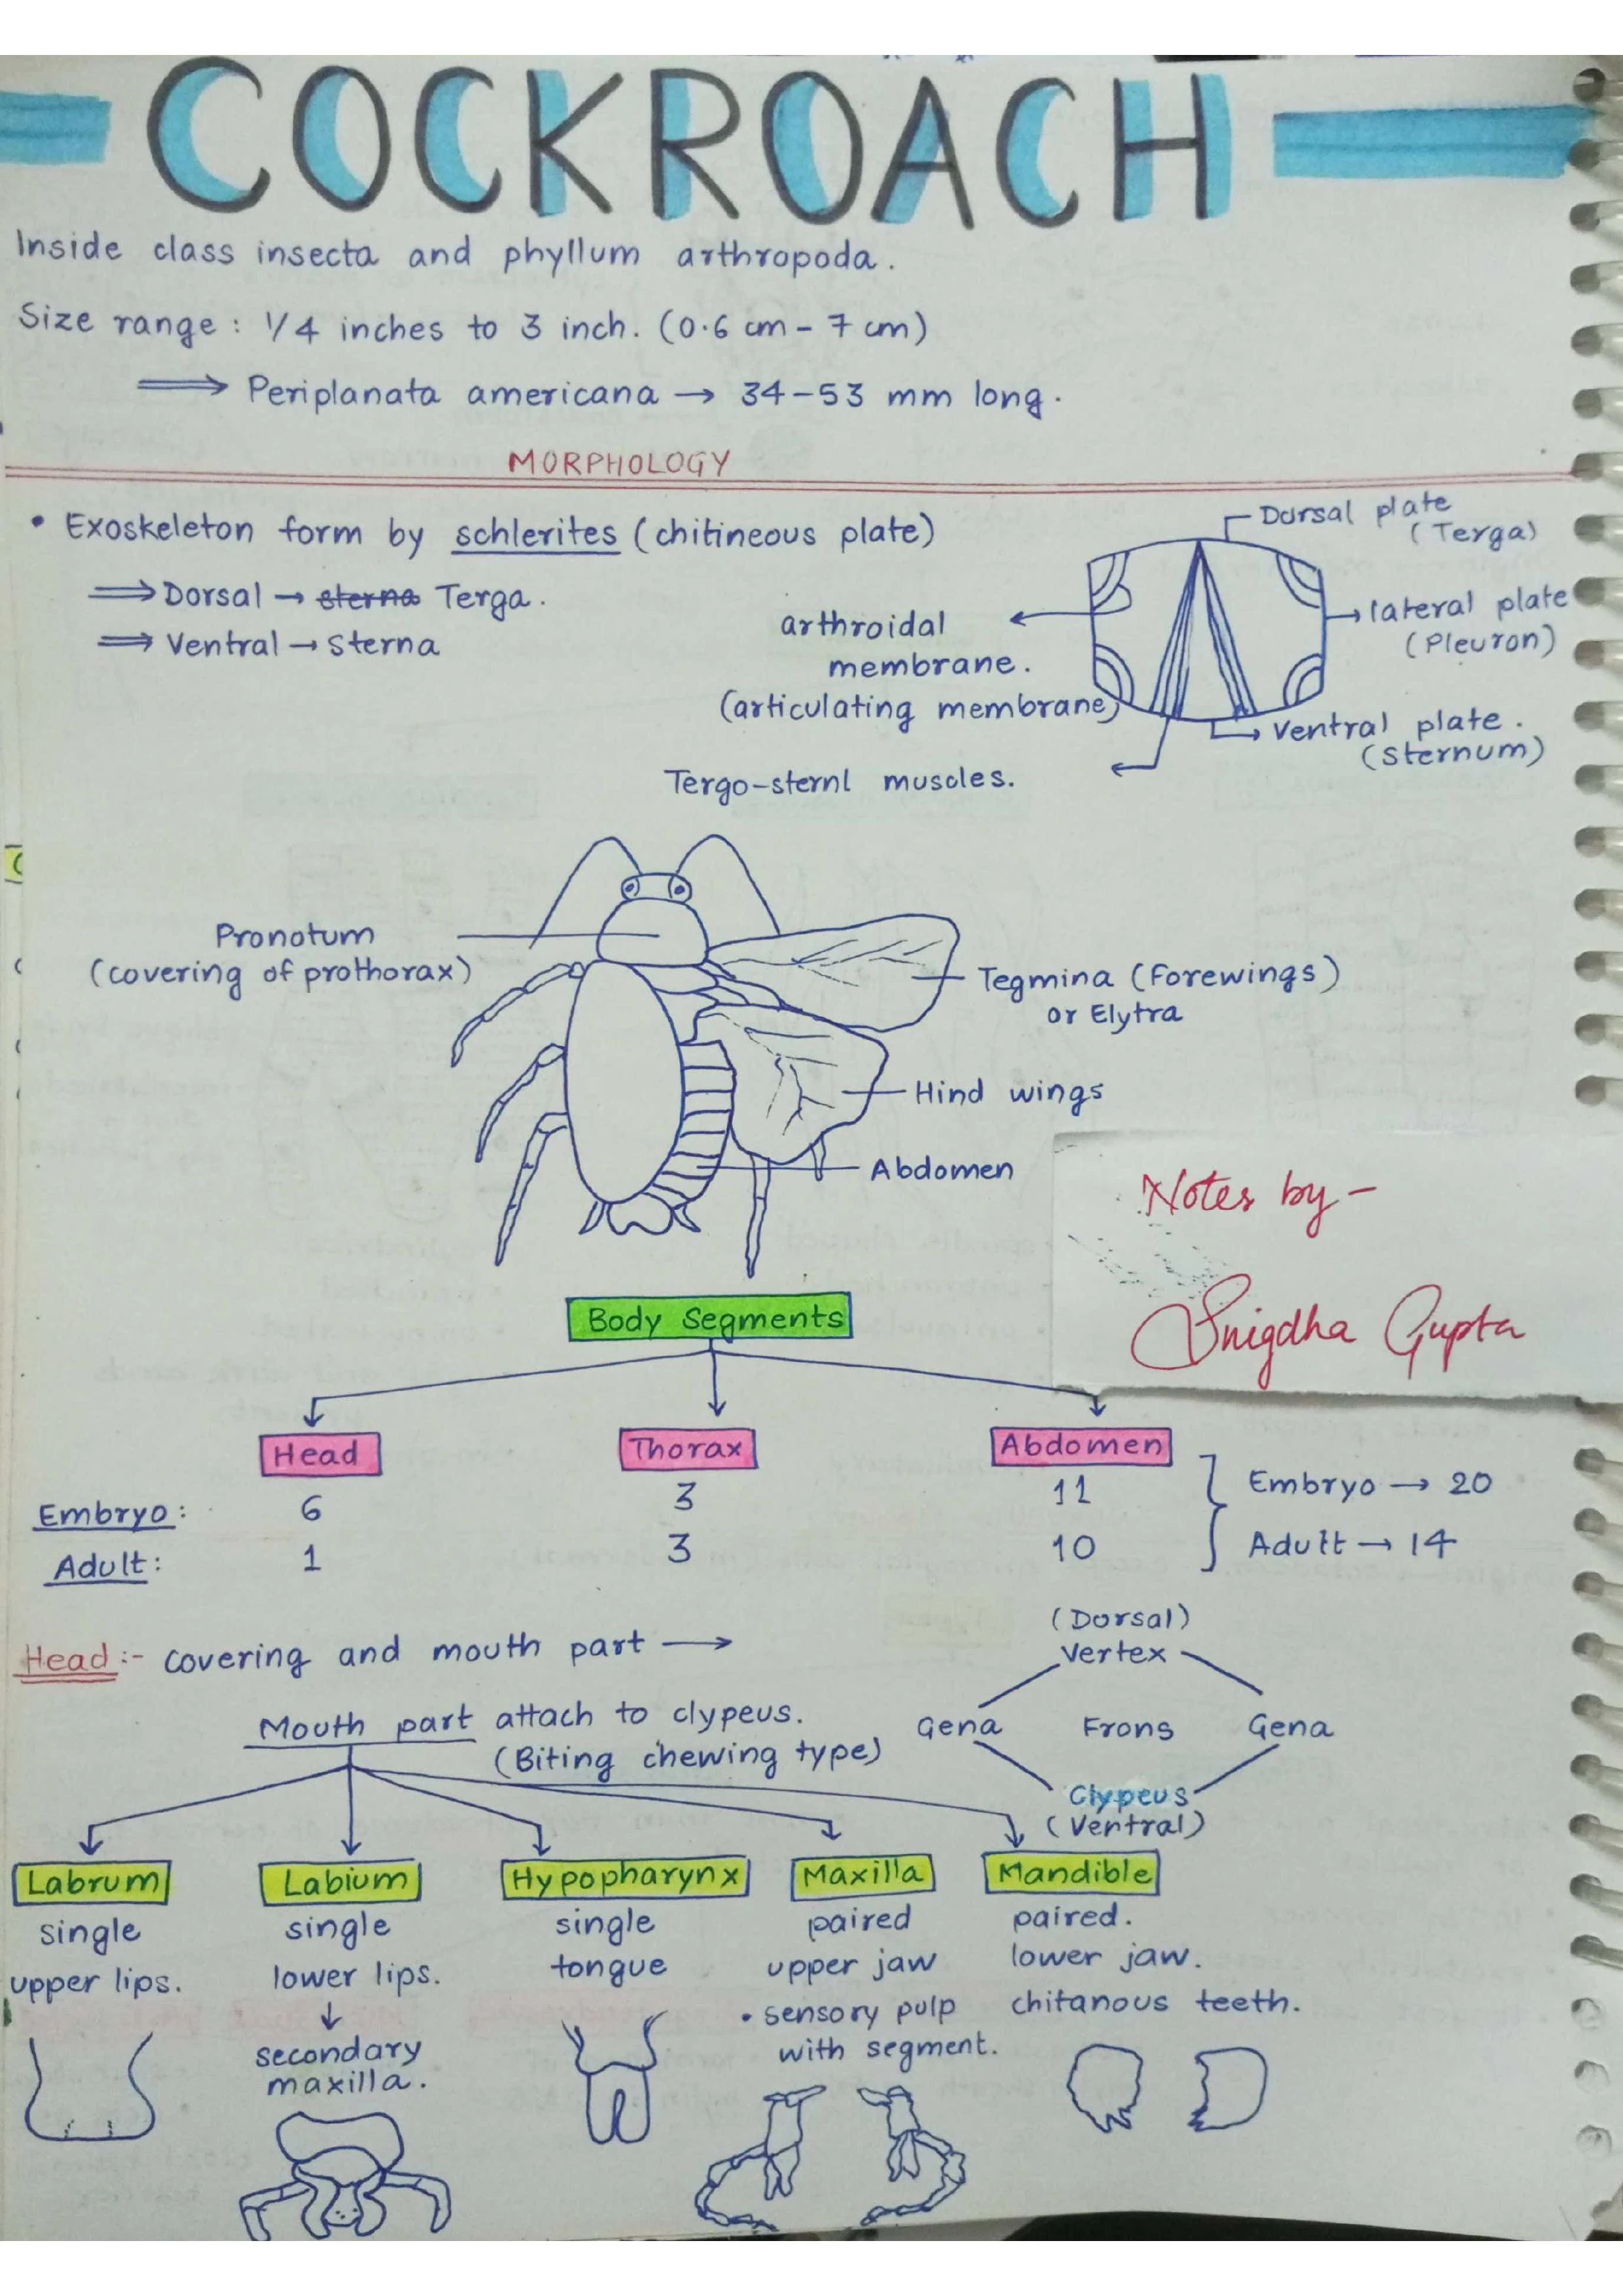 COCKROACH
Inside class insecta and phyllum arthropoda.
Size range : 1/4 inches to 3 inch. (0.6 cm - 7 cm)
⟹ Periplanata americana → 34-53 mm long.
MORPHOLOGY
• Exoskeleton form by schlerites (chitineous plate)
⟹ Dorsal → sterna Terga.
⟹ Ventral → Sterna
Dorsal plate
(Terga)
lateral plate
(Pleuron)
arthroidal
membrane.
(articulating membrane)
Ventral plate.
(Sternum)
Tergo-sternl muscles.
Pronotum
(covering of prothorax)
Tegmina (Forewings)
or Elytra
Hind wings
Abdomen
Notes by -
Snigdha Gupta
Body Segments
Head Thorax Abdomen
Embryo: 6 3 11 Embryo → 20
Adult: 1 3 10 Adult → 14
Head :- covering and mouth part →
(Dorsal)
Vertex
Gena Frons Gena
Clypeus
(Ventral)
Mouth part attach to clypeus.
(Biting chewing type)
Labrum
single
upper lips.
Labium
single
lower lips.
↓
secondary
maxilla.
Hypopharynx
single
tongue
Maxilla
paired
upper jaw
• sensory pulp
with segment.
Mandible
paired.
lower jaw.
chitanous teeth.